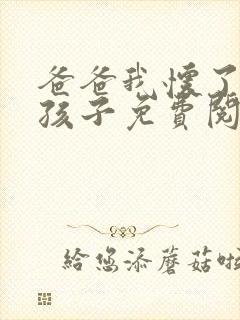 爸爸我懷了
孩子免費閱
給您添蘑菇啦